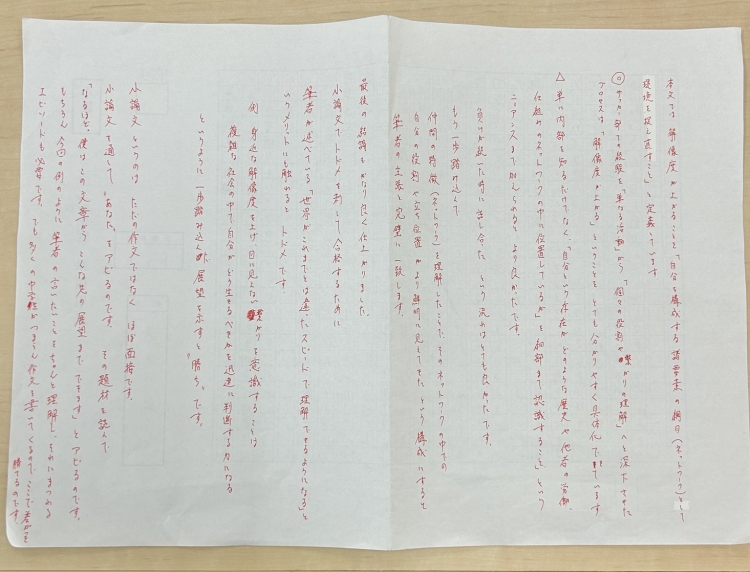 本文では「解像度が上がること」を「自分を構成する諸要素の網目(ネットワーク)として
環境を捉え直すこと」と定義しています
◎サッカー部での経験を「単なる活動」から「個々の役割や繋がりの理解」へと深化させた
プロセスは「解像度が上がる」ということを とても分かりやすく具体化できています
△単に内部を知るだけでなく、「自分という存在が どのような歴史や他者の労働、
仕組みのネットワークの中に位置しているか」を細部まで認識すること」という
ニュアンスまで加えられると より良かったです。
負けが続いた時に話し合った という流れはとても良かったです。
もう一歩踏み込んで
仲間の特徴(ネットワーク)を理解したことで、そのネットワークの中での
自分の役割や立ち位置がより鮮明に見えてきた という構成にすると
筆者の主張と完璧に一致します。
最後の結論もかなり良く仕上がりました。
小論文でトドメを刺して合格するために
筆者が述べている「世界がこれまでとは違ったスピードで理解できるようになる」と
いうメリットにも触れると トドメです。
例 身近な解像度を上げ、目に見えない繋がりを意識することは
複雑な社会の中で自分がどう生きるべきかを迅速に判断する力になる
というように一歩踏み込んだ展望を示すと"勝ち"です。
小論文というのは ただの作文ではなく ほぼ面接です。
小論文を通して「あなた」をアピるのです。 その題材を読んで
「なるほど、僕はこの文章から こんな先の展望まで できます」とアピるのです。
もちろん 今回の例のように 筆者の言いたいことをちゃんと理解し、それにまつわる
エピソードも必要です。でも多くの中学生がつまらん作文を書いてくるので、ここで差がつき
勝てるのです。